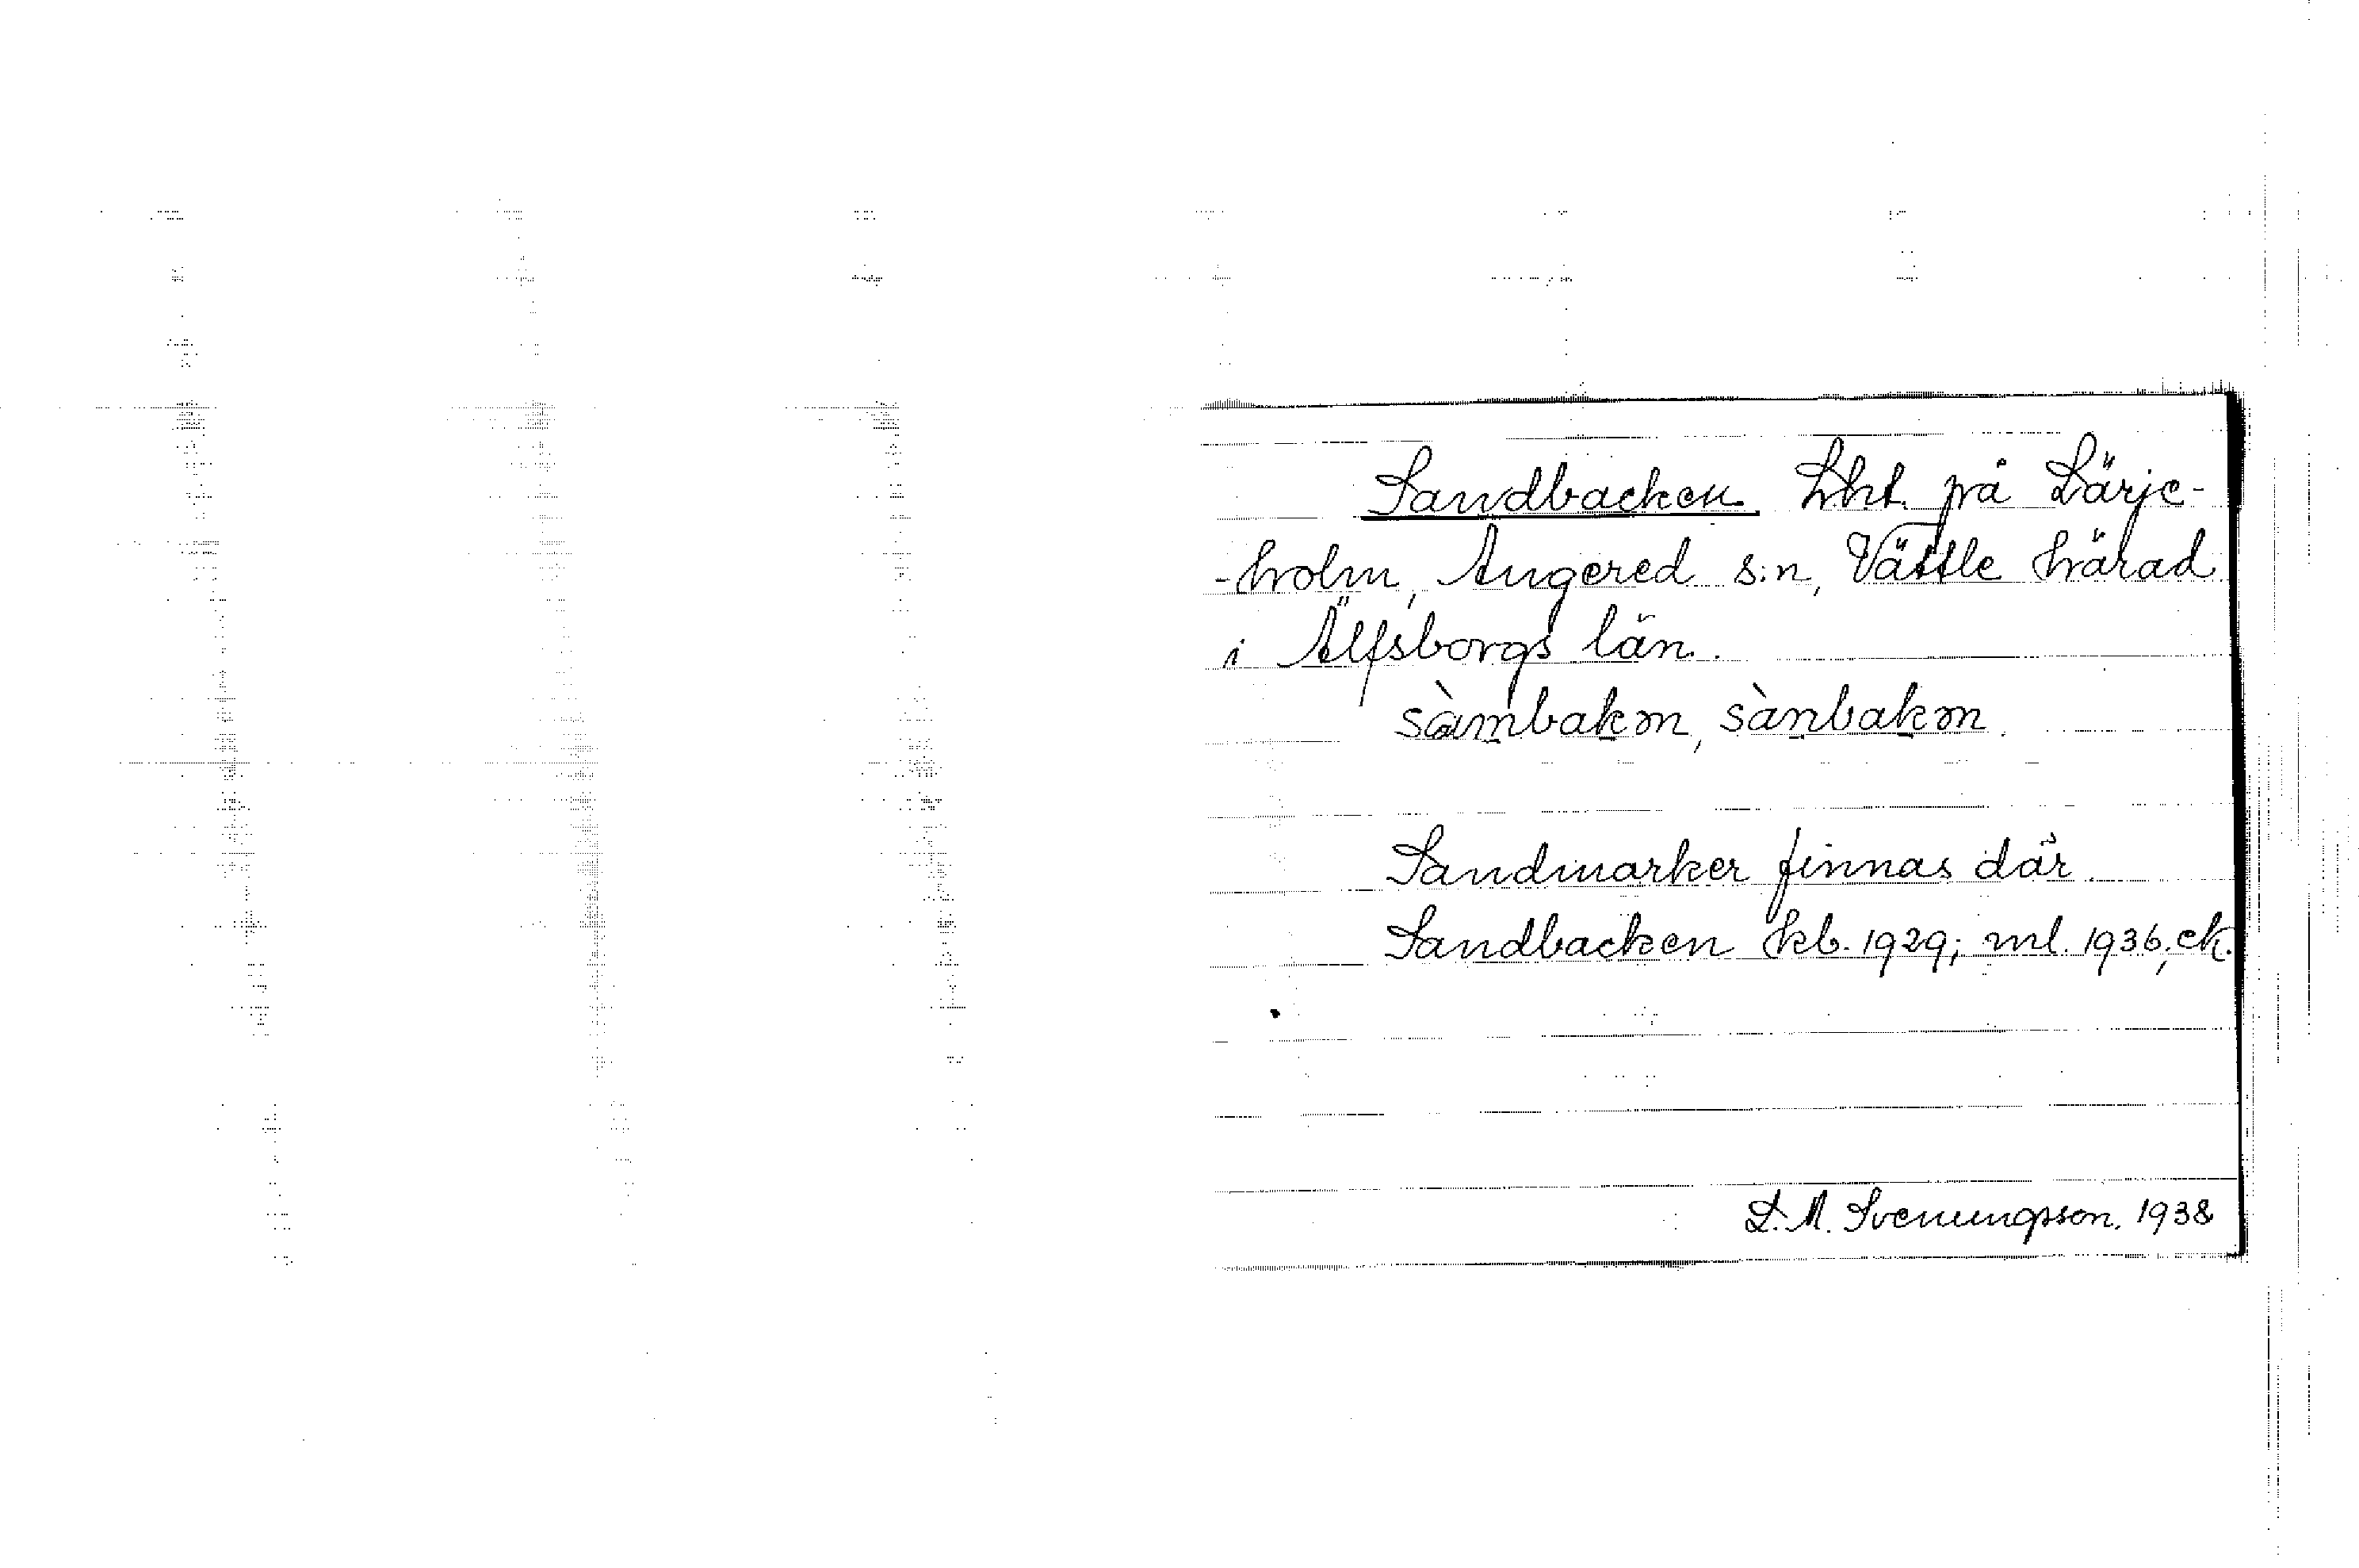 Sandbacken. Lht. på Lärje-
-holm, Angered s:n, Vättle härad
i Älfsborgs län.
sàmbakən, sànbakən.
Sandmarker finnas där
Sandbacken kb. 1929; ml. 1936; ek.
L. M. Svenungsson. 1938